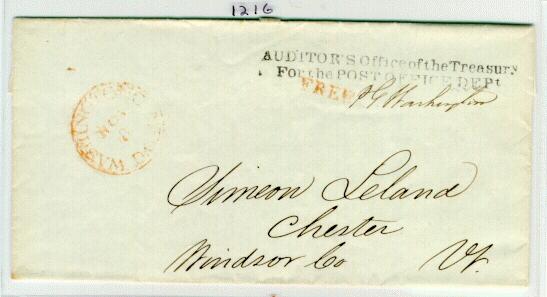 1216
AUDITOR'S Office of the Treasury
For the POST OFFICE DEPt
FREE
P G Washington
WASHINGTON CITY D.C.
NOV
Simeon Leland
Chester
Windsor Co Vt.